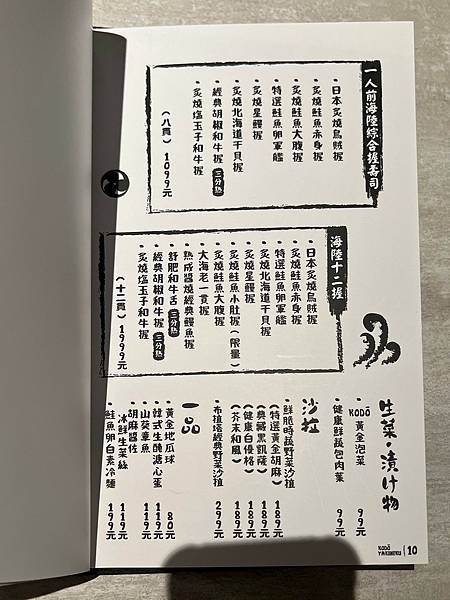 一人前海陸綜合握壽司
・日本炙燒烏賊握
・炙燒鮭魚赤身握
・炙燒鮭魚大腹握
・特選鮭魚卵軍艦
・炙燒星鰻握
・炙燒北海道干貝握
・經典胡椒和牛握 三分熟
・炙燒塩玉子和牛握
(八貫) 1099元
海陸十二握
・日本炙燒烏賊握
・炙燒鮭魚赤身握
・特選鮭魚卵軍艦
・炙燒北海道干貝握
・炙燒星鰻握
・炙燒鮭魚小肚握(限量)
・炙燒鮭魚大腹握
・大海老一貫握
・熟成醬燒經典鰻魚握
・舒肥和牛舌 三分熟
・經典胡椒和牛握 三分熟
・炙燒塩玉子和牛握
(十二貫) 1999元
生菜・漬け物
・KODŌ 黃金泡菜 99元
・健康鮮蔬包肉菜 99元
沙拉
・鮮脆時蔬野菜沙拉
(特選黃金胡麻) 189元
(典藏黑凱薩) 189元
(健康白優格) 189元
(芥末和風) 189元
・布拉塔經典野菜沙拉 299元
一品
・黃金地瓜球 80元
・韓式生醃溏心蛋 119元
・山葵章魚 119元
・胡麻醬佐
冰鮮生菜絲 119元
・鮭魚卵白素冷麵 199元
KODŌ
YAKINIKU
10